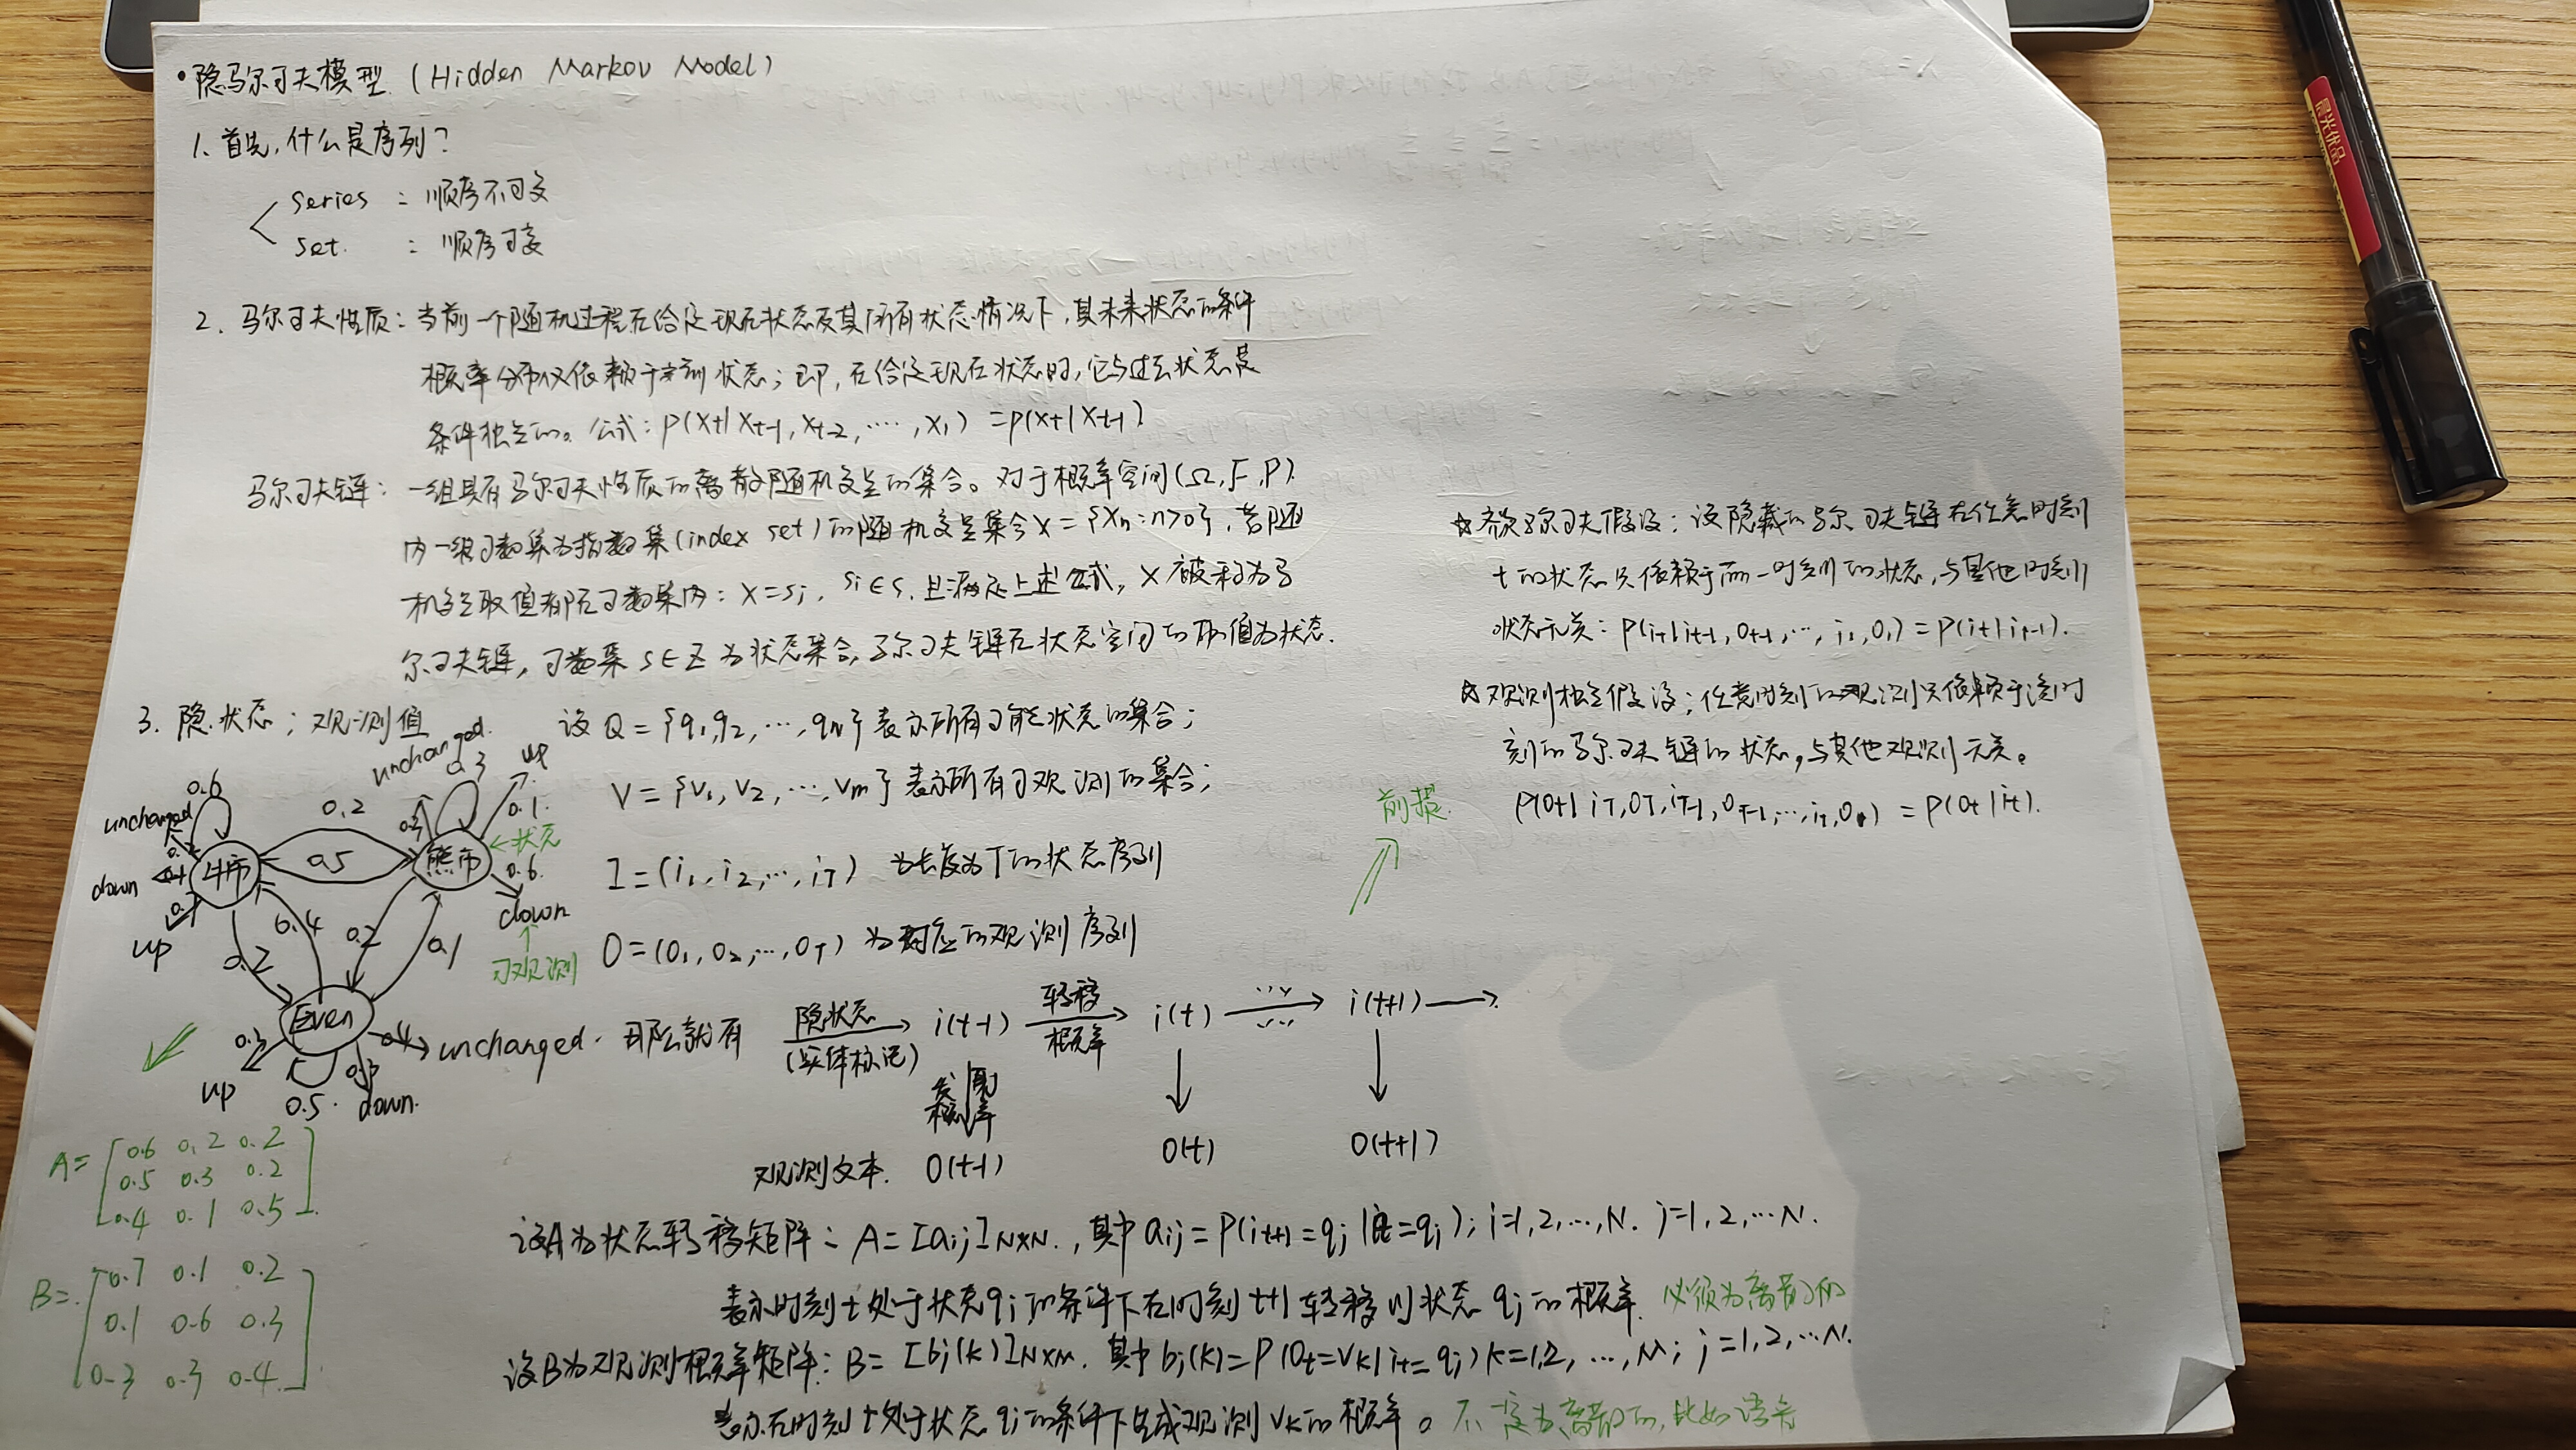 ·隐马尔可夫模型 (Hidden Markov Model)
1. 首先, 什么是序列?
series : 顺序不可变
set. : 顺序可变
2. 马尔可夫性质: 当前一个随机过程在给定现在状态及其所有状态情况下, 其未来状态的条件
概率分布仅依赖于当前状态; 即, 在给定现在状态时, 它与过去状态是
条件独立的。公式: P(Xt|Xt-1, Xt-2, ..., X1) = P(Xt|Xt-1)
马尔可夫链: 一组具有马尔可夫性质的离散随机变量的集合。对于概率空间(Ω,F,P)
内一组可数集为指数集(index set)的随机变量集合X={Xn:n>0}, 若随
机变量取值都在可数集内: X=si, si∈s, 且满足上述公式, X被称为马
尔可夫链, 可数集S∈Z为状态集合, 马尔可夫链在状态空间的取值为状态.
☆齐次马尔可夫假设: 设隐藏的马尔可夫链在任意时刻
t的状态只依赖于前一时刻的状态, 与其他时刻
状态无关: P(it|it-1, Ot-1, ..., i1, O1) = P(it|it-1).
☆观测独立假设: 任意时刻的观测只依赖于该时
刻的马尔可夫链的状态, 与其他观测无关。
P(Ot|iT,OT,iT-1,OT-1,...,i1,O1) = P(Ot|it).
前提.
3. 隐状态; 观测值
设Q={q1,q2,...,qN}表示所有可能状态的集合;
V={v1,v2,...,vm}表示所有可观测的集合;
I=(i1,i2,...,iT) 为长度为T的状态序列
O=(O1,O2,...,OT) 为对应的观测序列
unchanged.
0.3
up
0.1
0.6
unchanged
0.2
0.5
牛市
熊市
←状态
0.6.
down
down
可观测
up
0.2
0.4
0.2
0.1
Even
0.4
unchanged.
0.3
up
0.5.
0.3
down.
那么就有
隐状态
(实体标记)
i(t-1)
转移
概率
i(t)
...
i(t+1)
发射
概率
观测文本. O(t-1)
O(t)
O(t+1)
A=[0.6 0.2 0.2
0.5 0.3 0.2
0.4 0.1 0.5].
B=[0.7 0.1 0.2
0.1 0.6 0.3
0.3 0.3 0.4]
设A为状态转移矩阵: A=[aij]N×N., 其中aij=P(it+1=qj|it=qi); i=1,2,...,N. j=1,2,...N.
表示时刻t处于状态qi的条件下在时刻t+1转移到状态qj的概率. 必须为离散的
设B为观测概率矩阵: B=[bj(k)]N×M. 其中bj(k)=P(Ot=Vk|it=qj) k=1,2,...,M; j=1,2,...N.
表示在时刻t处于状态qj的条件下生成观测Vk的概率。不一定为离散的, 比如语音
晨光优品